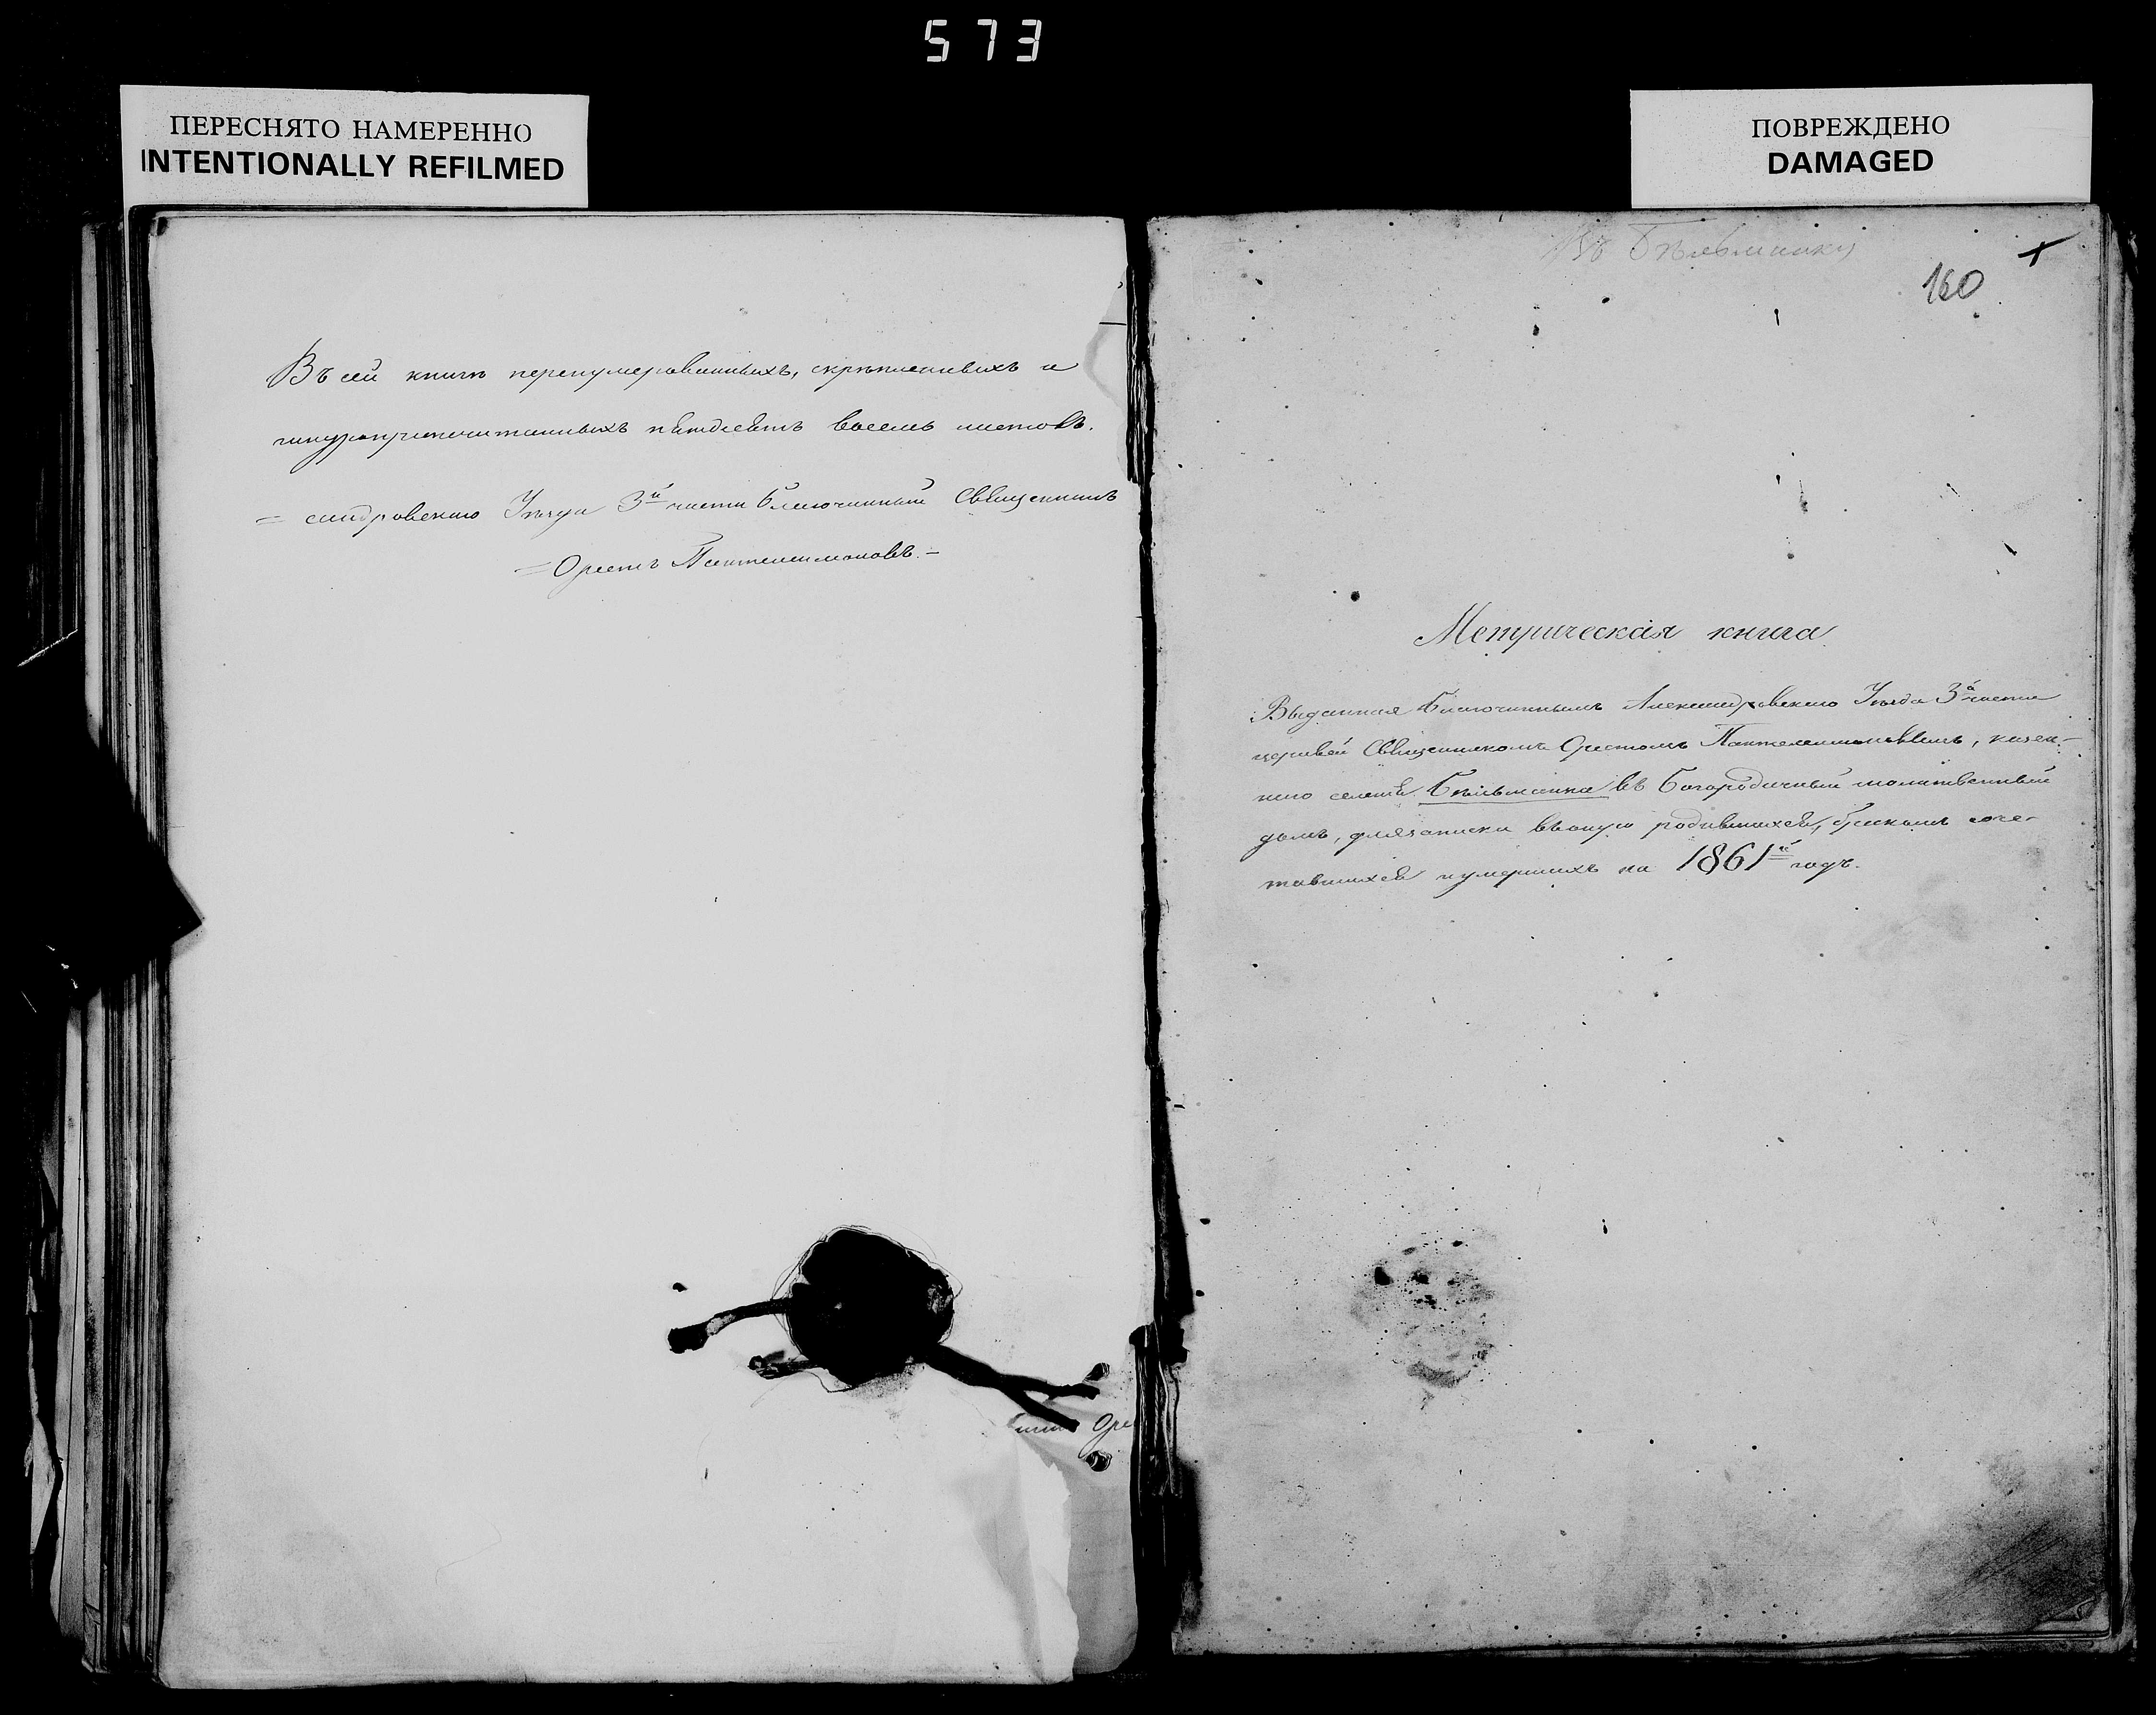 573
ПЕРЕСНЯТО НАМЕРЕННО
INTENTIONALLY REFILMED
ПОВРЕЖДЕНО
DAMAGED
Въ сей книгѣ перенумерованныхъ, скрѣпленныхъ и
пятдесятъ восемь листовъ.
= Уѣзда 3й части Благочинный Священникъ
= Орестъ Пантелеимоновъ. –
Оре
Въ Бѣльманку
160
Метрическая книга
Выданная Благочиннымъ Александровскаго Уѣзда 3й части
церквей Священникомъ Орестомъ Пантелеимоновымъ, казен-
наго селенія Бѣльманка въ Богородичный молитвенный
домъ, для записки въ оную родившихся, бракомъ соче-
тавшихся и умершихъ на 1861й годъ.